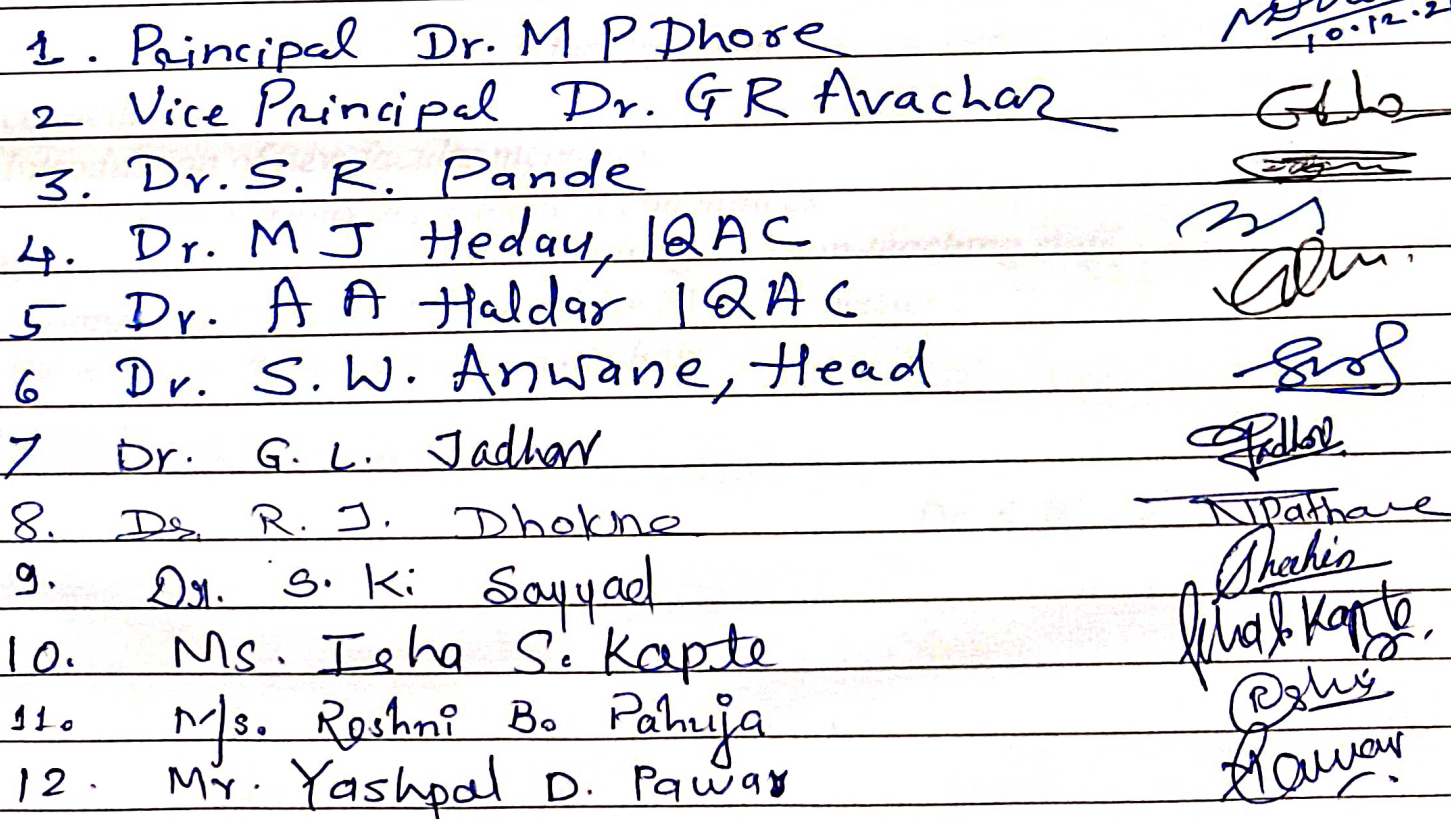 1. Principal Dr. M P Dhore 10.12.2
2 Vice Principal Dr. G R Avachar
3. Dr. S. R. Pande
4. Dr. M J Hedau, IQAC
5 Dr. A A Haldar IQAC
6 Dr. S. W. Anwane, Head
7 Dr. G. L. Jadhav Jadhav
8. Dr. R. J. Dhokne NPathare
9. Dr. S. Ki Sayyad Shahin
10. Ms. Isha S. Kapte Kapte
11. Ms. Roshni B. Pahuja
12. Mr. Yashpal D. Pawar Pawar